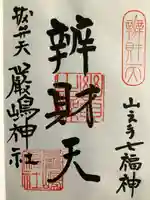 辨財天
山之手七福神
辨財天
抜弁天
嚴嶋神社